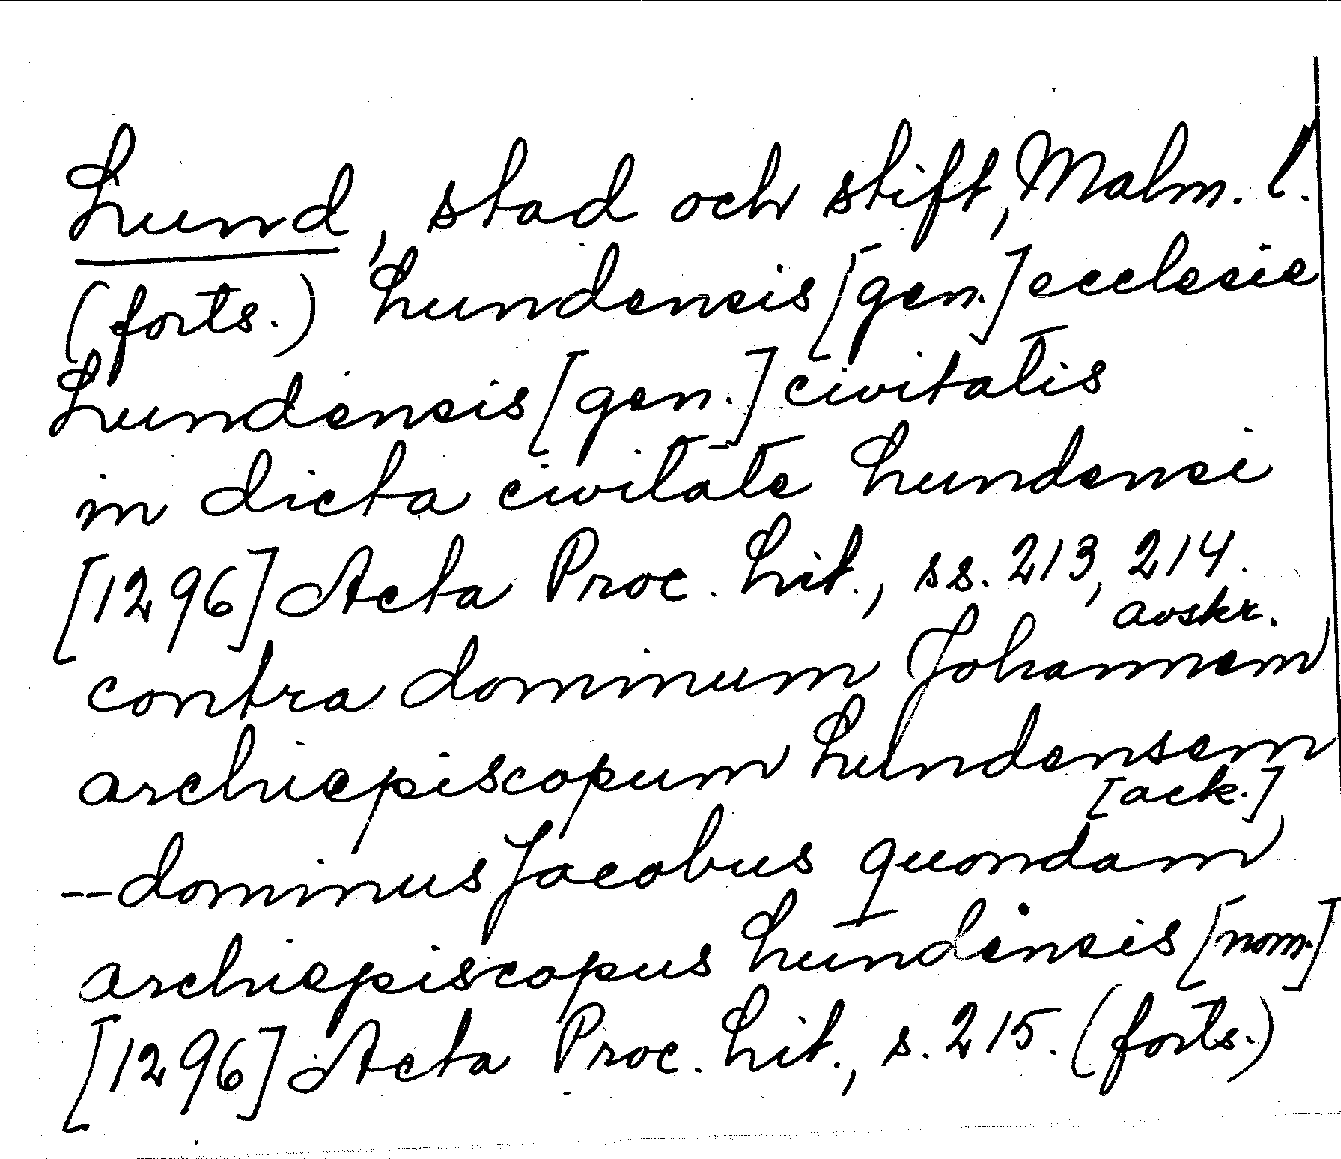 Lund, stad och stift, Malm. l.
(forts.) Lundensis [gen.] ecclesie
Lundensis [gen.] civitatis
in dicta civitate Lundensi
[1296] Acta Proc. Lit., ss. 213, 214.
avskr.
contra dominum Johannem
archiepiscopum Lundensem
[ack.]
-- dominus Jacobus quondam
archiepiscopus Lundensis [nom.]
[1296] Acta Proc. Lit., s. 215. (forts.)